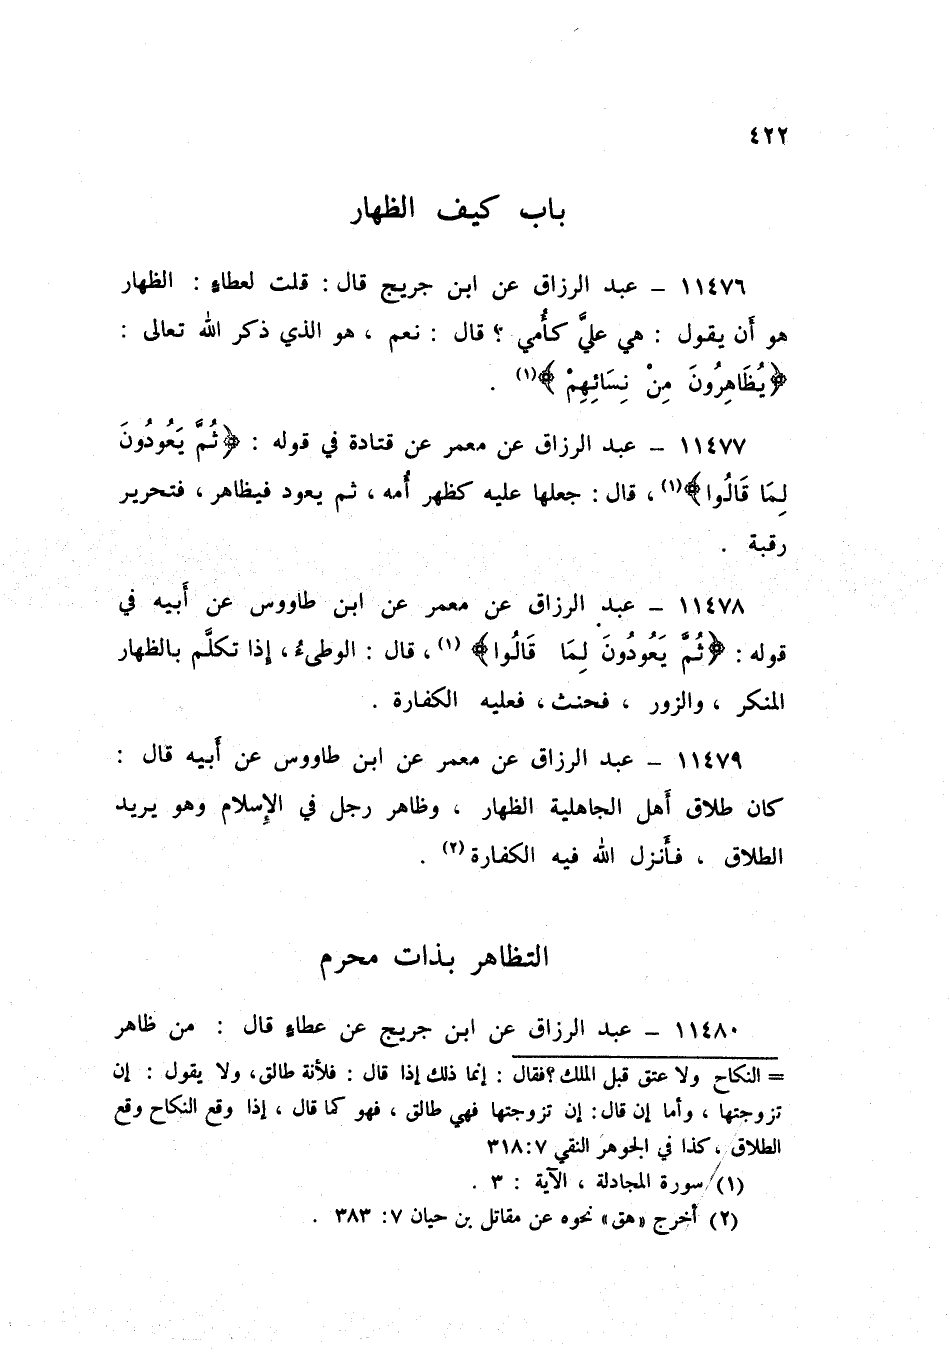 ٤٢٢
باب كيف الظهار
١١٤٧٦ – عبد الرزاق عن ابن جريج قال : قلت لعطاءٍ : الظهار
هو أَن يقول : هي عليَّ كأُمي ؟ قال : نعم ، هو الذي ذكر الله تعالى :
﴿يُظَاهِرُونَ مِنْ نِسَائِهِمْ﴾(١) .
١١٤٧٧ – عبد الرزاق عن معمر عن قتادة في قوله : ﴿ثُمَّ يَعُودُونَ
لِمَا قَالُوا﴾(١) ، قال : جعلها عليه كظهر أُمه ، ثم يعود فيظاهر ، فتحرير
رقبة .
١١٤٧٨ – عبد الرزاق عن معمر عن ابن طاووس عن أَبيه في
قوله : ﴿ثُمَّ يَعُودُونَ لِمَا قَالُوا﴾ (١) ، قال : الوطيءُ ، إذا تكلَّم بالظهار
المنكر ، والزور ، فحنث ، فعليه الكفارة .
١١٤٧٩ – عبد الرزاق عن معمر عن ابن طاووس عن أَبيه قال :
كان طلاق أَهل الجاهلية الظهار ، وظاهر رجل في الإِسلام وهو يريد
الطلاق ، فأَنزل الله فيه الكفارة(٢) .
التظاهر بذات محرم
١١٤٨٠ – عبد الرزاق عن ابن جريج عن عطاءٍ قال : من ظاهر
= النكاح ولا عتق قبل الملك ؟ فقال : إنما ذلك إذا قال : فلأنة طالق، ولا يقول : إن
تزوجتها ، وأما إن قال : إن تزوجتها فهي طالق ، فهو كما قال ، إذا وقع النكاح وقع
الطلاق ، كذا في الجوهر النقي ٧:٣١٨
(١) سورة المجادلة ، الآية : ٣ .
(٢) أخرج «هق» نحوه عن مقاتل بن حيان ٧: ٣٨٣ .